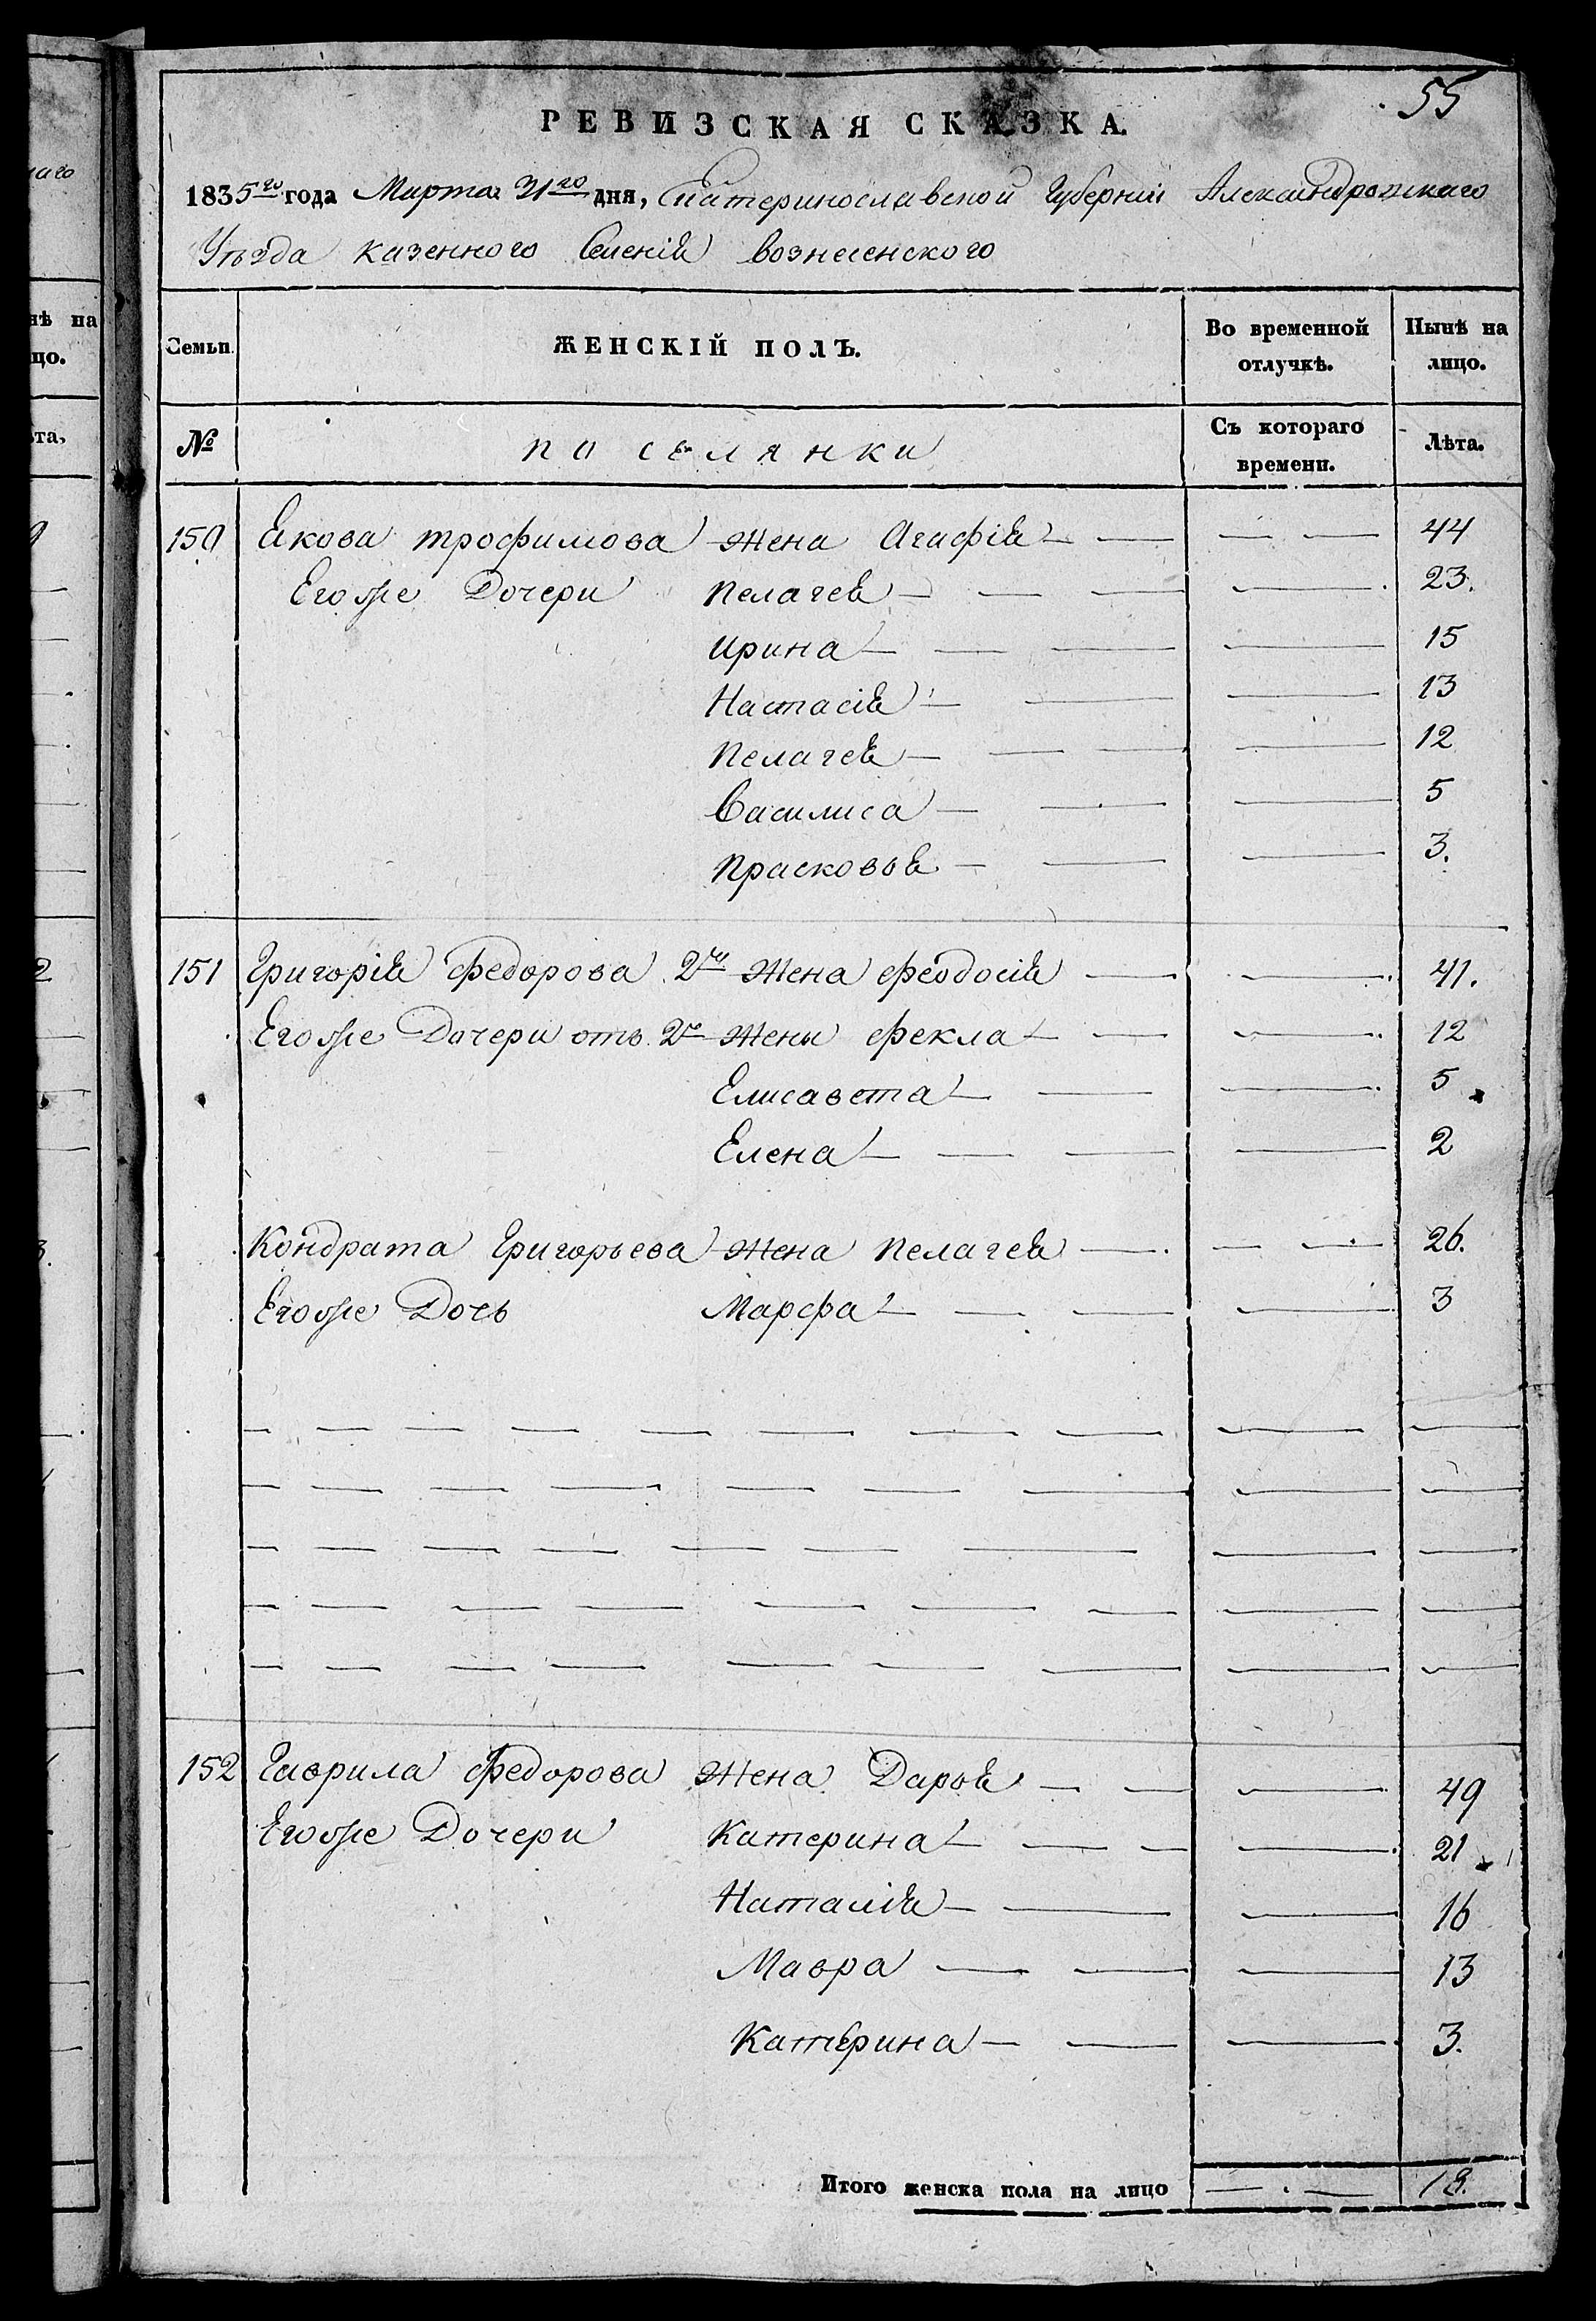 55
РЕВИЗСКАЯ СКАЗКА.
1835го года Марта 31го дня, Екатеринославской Губерніи Александровскаго
Уѣзда казенного Селенія Вознесенского
Семьи. ЖЕНСКІЙ ПОЛЪ. Во временной отлучкѣ. Нынѣ на лицо.
№ поселянки Съ котораго времени. Лѣта.
150 Якова трофимова жена Агафія — — — — 44
Егоже Дочери Пелагея — — — — 23.
Ирина — — — — 15
Настасія — — — 13
Пелагея — — — — 12
Василиса — — — 5
Прасковья — — — 3.
151 Григорія Федорова 2я жена Феодосія — — 41.
Егоже Дочери отъ 2й жены Фекла — — — 12
Елисавета — — — 5
Елена — — — — 2
Кондрата Григорьева жена Пелагея — — — 26.
Егоже Дочь Марфа — — — — 3
152 Гаврила Федорова жена Дарья — — — 49
Егоже Дочери Катерина — — — — 21
Наталія — — — 16
Мавра — — — 13
Катерина — — — 3.
Итого женска пола на лицо — . — 18.